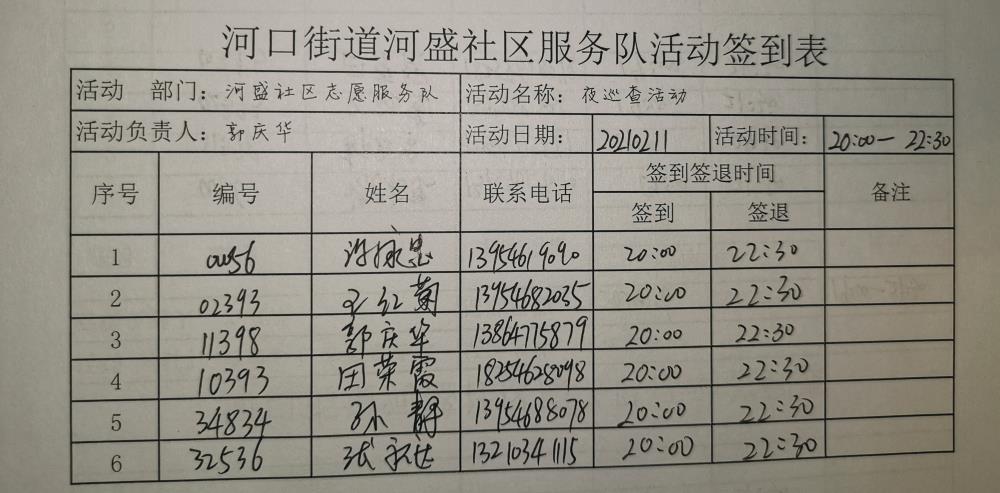 河口街道河盛社区服务队活动签到表
活动 部门：河盛社区志愿服务队 活动名称：夜巡查活动
活动负责人：郭庆华 活动日期： 20210211 活动时间： 20:00— 22:30
序号 编号 姓名 联系电话 签到签退时间 备注
签到 签退
1 0056 13954619090 20:00 22:30
2 02393 王红菊 13954682035 20:00 22:30
3 11398 郭庆华 13864775879 20:00 22:30
4 10393 田荣霞 18254628098 20:00 22:30
5 34834 孙静 13954688078 20:00 22:30
6 32536 13210341115 20:00 22:30